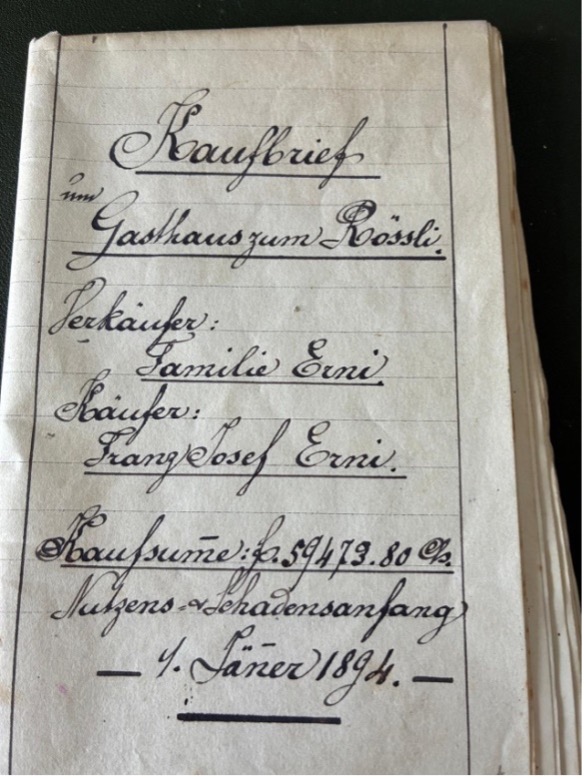 Kaufbrief
um
Gasthaus zum Rössli.
Verkäufer:
Familie Erni.
Käufer:
Franz Josef Erni.
Kaufsum̅e: fr. 59473.80 Cts.
Nutzens- & Schadensanfang
— 1. Jän̅er 1894. —